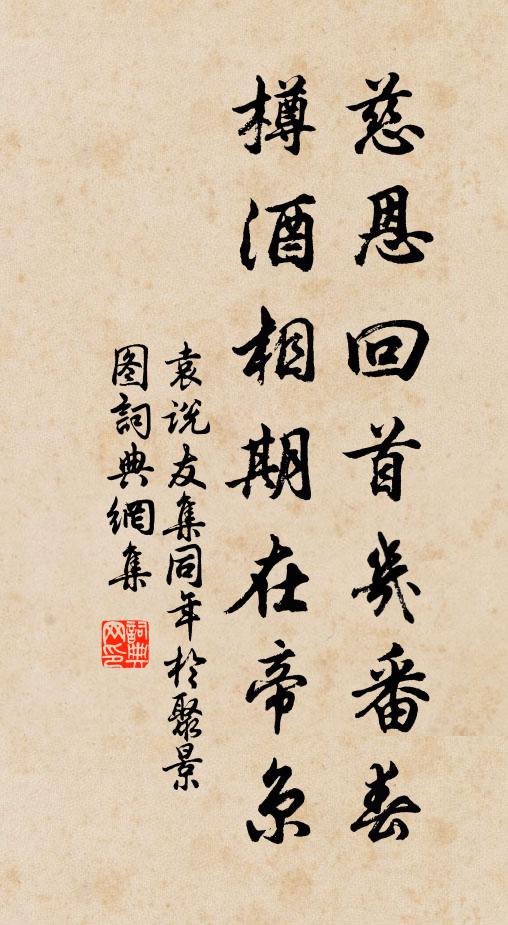 慈恩回首幾番春
樽酒相期在帝京
袁说友集同年於聚景
图詞典網集
詞典网印